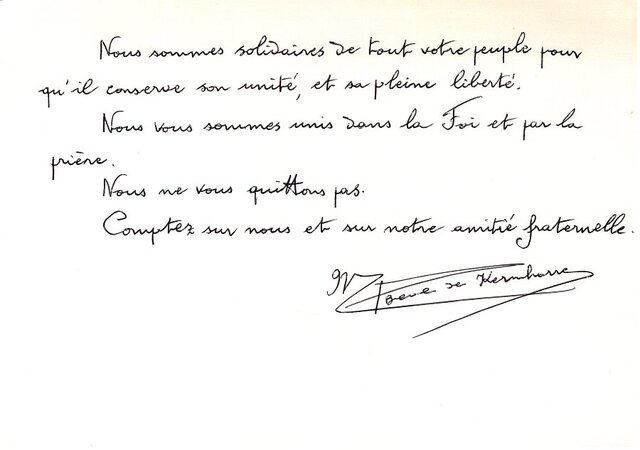 Nous sommes solidaires de tout votre peuple pour
qu'il conserve son unité, et sa pleine liberté.
Nous vous sommes unis dans la Foi et par la
prière.
Nous ne vous quittons pas.
Comptez sur nous et sur notre amitié fraternelle.
de